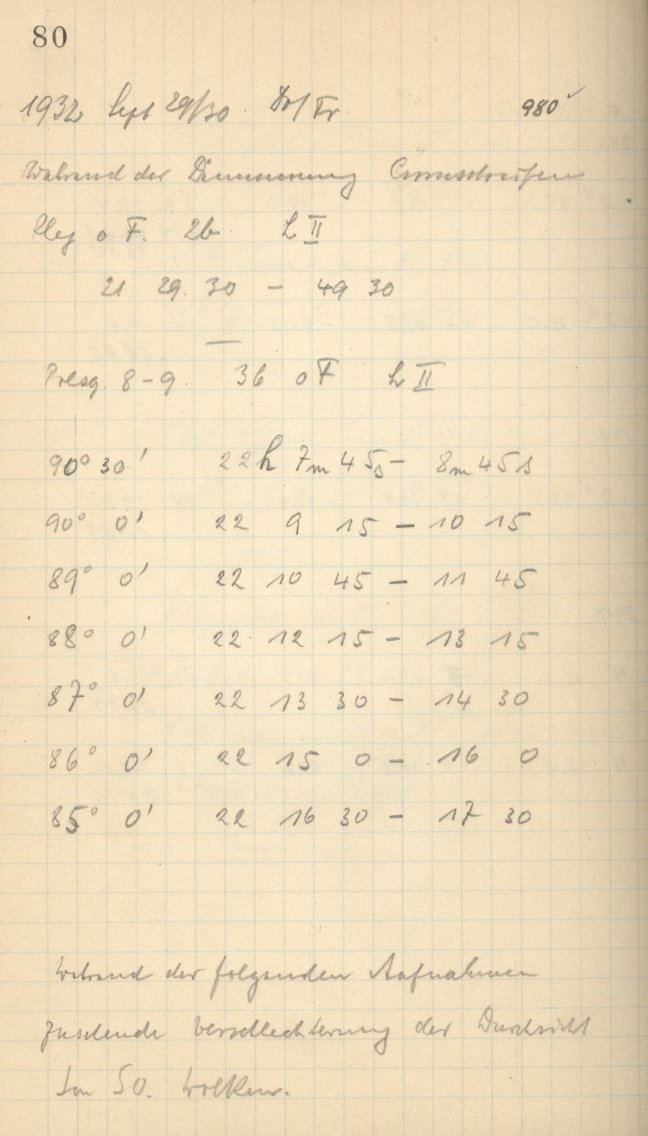 80
1932 Sept 29/30. Do/Fr 980✓
Während der Dämmerung Cirrusstreifen
Plej o F. 2b h II
21 29. 30 – 49 30
—
Präsq. 8–9. 3b o F h II
90° 30' 22h 7m 45s – 8m 45s
90° 0' 22 9 15 – 10 15
89° 0' 22 10 45 – 11 45
88° 0' 22 12 15 – 13 15
87° 0' 22 13 30 – 14 30
86° 0' 22 15 0 – 16 0
85° 0' 22 16 30 – 17 30
Während der folgenden Aufnahmen
zusehende Verschlechterung der Durchsicht
Im SO. Wolken.